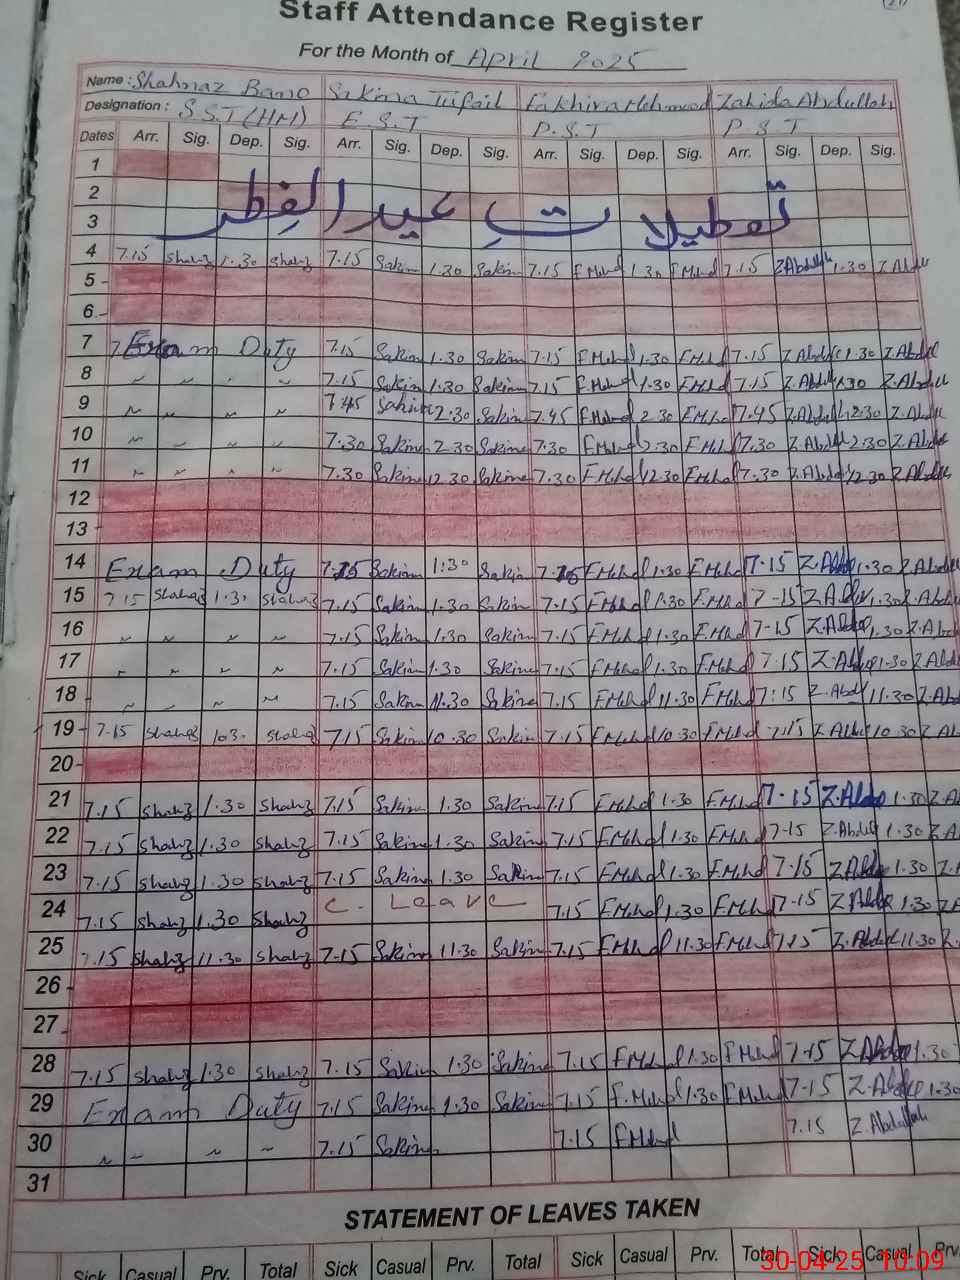 Staff Attendance Register
For the Month of April 2025
Name : Shahnaz Bano Sakina Tufail Fakhira Mehmood Zahida Abdullah
Designation : S.S.T (HM) E.S.T P.S.T P.S.T
Dates Arr. Sig. Dep. Sig. Arr. Sig. Dep. Sig. Arr. Sig. Dep. Sig. Arr. Sig. Dep. Sig.
1
2
تعطیلاتِ عیدالفِطر
3
4 7.15 Shahz 1.30 Shahz 7.15 Sakin 1.30 Sakin 7.15 F.Mehd 1.30 F.Mehd 7.15 Z.Abdull 1.30 Z.Abdull
5
6
7 Exam Duty 7.15 Sakin 1.30 Sakin 7.15 F.Mehd 1.30 F.Mehd 7.15 Z.Abdul 1.30 Z.Abdul
8 〃 〃 〃 〃 7.15 Sakin 1.30 Sakin 7.15 F.Mehd 1.30 F.Mehd 7.15 Z.Abdul 1.30 Z.Abdul
9 〃 〃 〃 〃 7.45 Sakin 2.30 Sakin 7.45 F.Mehd 2.30 F.Mehd 7.45 Z.Abdul 12.30 Z.Abdul
10 〃 〃 〃 〃 7.30 Sakin 2.30 Sakin 7.30 F.Mehd 2.30 F.Mehd 7.30 Z.Abdul 12.30 Z.Abdul
11 〃 〃 〃 〃 7.30 Sakin 12.30 Sakin 7.30 F.Mehd 12.30 F.Mehd 7.30 Z.Abdul 12.30 Z.Abdul
12
13
14 Exam Duty 7.15 Sakin 1.30 Sakin 7.15 F.Mehd 1.30 F.Mehd 7.15 Z.Abdul 1.30 Z.Abdul
15 7.15 Shahz 1.30 Shahz 7.15 Sakin 1.30 Sakin 7.15 F.Mehd 1.30 F.Mehd 7-15 Z.Abdul 1.30 Z.Abdu
16 〃 〃 〃 〃 7.15 Sakin 1.30 Sakin 7.15 F.Mehd 1.30 F.Mehd 7-15 Z.Abdul 1.30 Z.Abd
17 〃 〃 〃 〃 7.15 Sakin 1.30 Sakin 7.15 F.Mehd 1.30 F.Mehd 7.15 Z.Abdul 1.30 Z.Abd
18 〃 〃 〃 〃 7.15 Sakin 11.30 Sakin 7.15 F.Mehd 11.30 F.Mehd 7:15 Z.Abdl 11.30 Z.Ab
19 7.15 Shahz 1030 Shahz 7.15 Sakin 10.30 Sakin 7.15 F.Mehd 10.30 F.Mehd 7.15 Z.Abdul 10.30 Z.Ab
20
21 7.15 Shahz 1.30 Shahz 7.15 Sakin 1.30 Sakin 7.15 F.Mehd 1.30 F.Mehd 7-15 Z.Abdul 1.30 Z.A
22 7.15 Shahz 1.30 Shahz 7.15 Sakin 1.30 Sakin 7.15 F.Mehd 1.30 F.Mehd 7-15 Z.Abdul 1.30 Z.A
23 7.15 Shahz 1.30 Shahz 7.15 Sakin 1.30 Sakin 7.15 F.Mehd 1.30 F.Mehd 7-15 Z.Abdul 1.30
24 7.15 Shahz 1.30 Shahz C. Leave 7.15 F.Mehd 1.30 F.Mehd 7-15 Z.Abdul 1.30
25 7.15 Shahz 11.30 Shahz 7.15 Sakin 11.30 Sakin 7.15 F.Mehd 11.30 F.Mehd 7.15 Z.Abdul 11.30
26
27
28 7.15 Shahz 1.30 Shahz 7.15 Sakin 1.30 Sakin 7.15 F.Mehd 1.30 F.Mehd 7-15 Z.Abdul 1.30
29 Exam Duty 7.15 Sakin 1.30 Sakin 7.15 F.Mehd 1.30 F.Mehd 7-15 Z.Abdul 1.30
30 〃 〃 〃 〃 7.15 Sakin 7.15 F.Mehd 7.15 Z.Abdullah
31
STATEMENT OF LEAVES TAKEN
Sick Casual Prv. Total Sick Casual Prv. Total Sick Casual Prv. Total Sick Casual Prv.
30-04-25 10:09